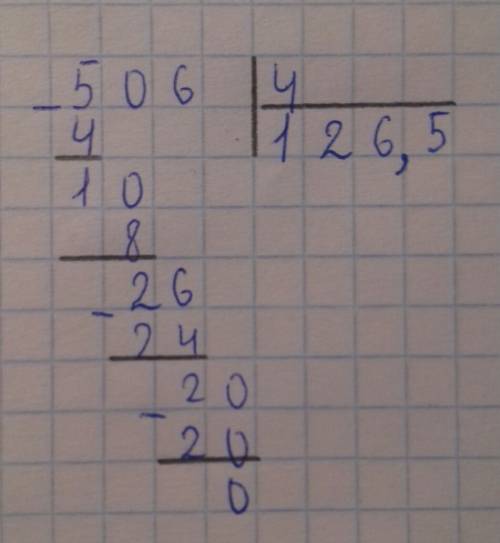 - 506 | 4
4 | 126,5
10
8
- 26
24
- 20
20
0